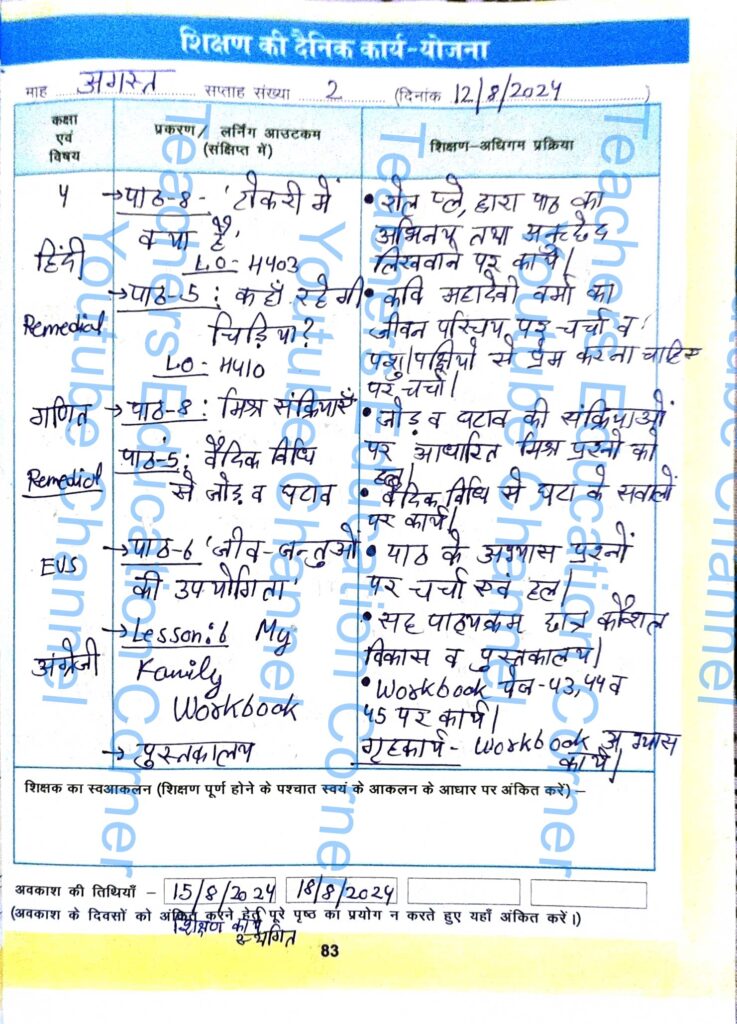 शिक्षण की दैनिक कार्य-योजना
माह अगस्त सप्ताह संख्या 2 (दिनांक 12/8/2024)
कक्षा एवं विषय
प्रकरण/ लर्निंग आउटकम (संक्षिप्त में)
शिक्षण-अधिगम प्रक्रिया
4
हिंदी
Remedial
गणित
Remedial
EVS
अंग्रेजी
→पाठ-8- 'टोकरी में
क्या है'
LO- H403
→पाठ-5: कहाँ रहेगी
चिड़िया?
LO- H410
→पाठ-8: मिश्र संक्रियाएँ
पाठ-5: वैदिक विधि
से जोड़ व घटाव
→पाठ-6 'जीव-जन्तुओं
की उपयोगिता'
→Lesson:6 My
Family
Workbook
→पुस्तकालय
• रोल प्ले, द्वारा पाठ का
अभिनय तथा अनुच्छेद
लिखवाने पर कार्य।
• कवि महादेवी वर्मा का
जीवन परिचय पर चर्चा व
पशु/पक्षियों से प्रेम करना चाहिए
पर चर्चा।
• जोड़ व घटाव की संक्रियाओं
पर आधारित मिश्र प्रश्नों को
हल।
• वैदिक विधि से घटा के सवालों
पर कार्य।
• पाठ के अभ्यास प्रश्नों
पर चर्चा एवं हल।
• सह पाठ्यक्रम छात्र कौशल
विकास व पुस्तकालय।
• Workbook पेज-43,44 व
45 पर कार्य।
गृहकार्य- Workbook अभ्यास
कार्य।
शिक्षक का स्वआकलन (शिक्षण पूर्ण होने के पश्चात स्वयं के आकलन के आधार पर अंकित करें) –
अवकाश की तिथियाँ – 15/8/2024 18/8/2024
(अवकाश के दिवसों को अंकित करने हेतु पूरे पृष्ठ का प्रयोग न करते हुए यहाँ अंकित करें।)
शिक्षण कार्य
स्थगित
83
Teachers Education Corner
Youtube Channel
Teachers Education Corner
Youtube Channel
Teachers Education Corner
Youtube Channel